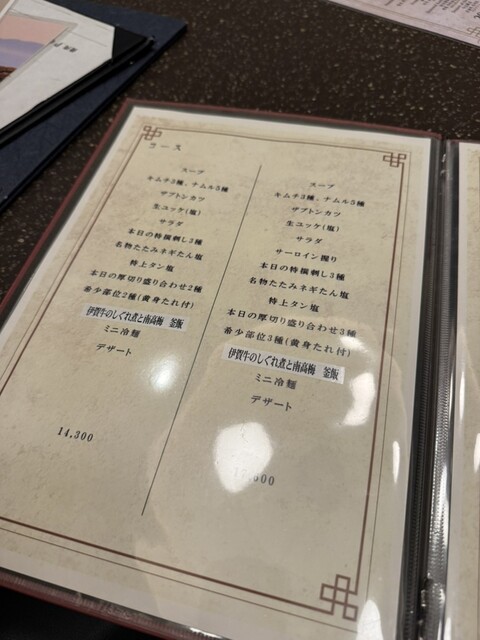 コース
スープ
キムチ3種、ナムル5種
ザブトンカツ
生ユッケ(塩)
サラダ
本日の特撰刺し3種
名物たたみネギたん塩
特上タン塩
本日の厚切り盛り合わせ2種
希少部位2種(黄身たれ付)
伊賀牛のしぐれ煮と南高梅 釜飯
ミニ冷麺
デザート
14,300
スープ
キムチ3種、ナムル5種
ザブトンカツ
生ユッケ(塩)
サラダ
サーロイン握り
本日の特撰刺し3種
名物たたみネギたん塩
特上タン塩
本日の厚切り盛り合わせ3種
希少部位3種(黄身たれ付)
伊賀牛のしぐれ煮と南高梅 釜飯
ミニ冷麺
デザート